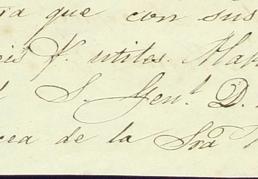 ra que con sus
utiles. Man
S. Gen.l D.
cea de la Sra